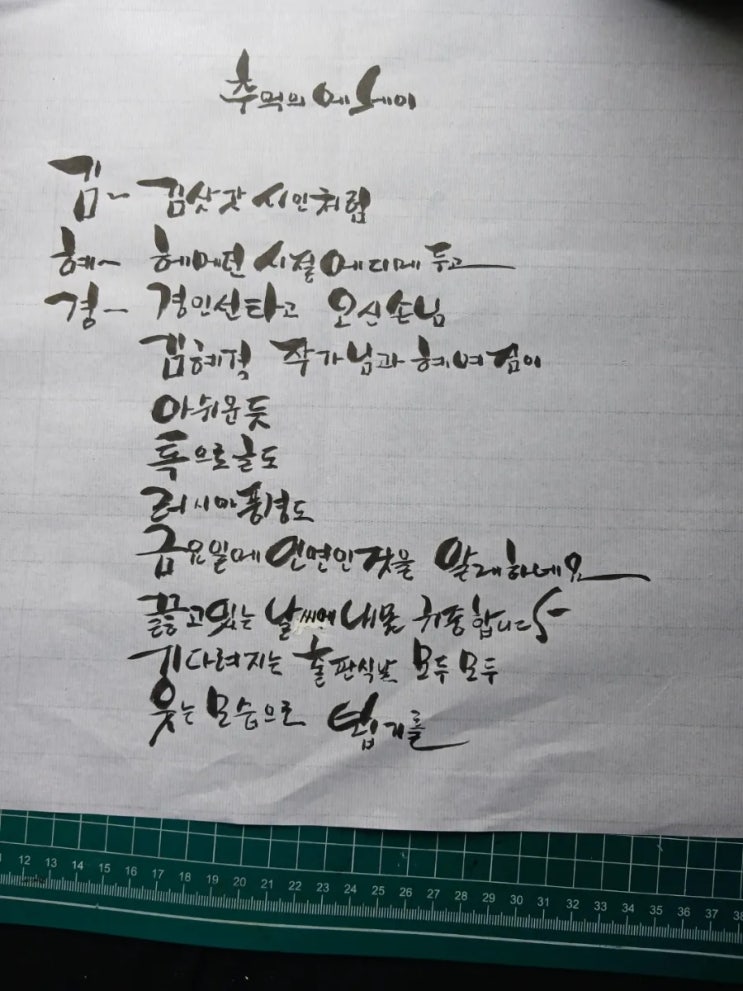 추억의 에세이
김~ 김삿갓 시인처럼
혜~ 헤메던 시절 에다메 두고
경~ 경인선타고 오신손님
김혜경 작가님과 헤여짐이
아쉬운듯
톡으로 글도
러시아풍경도
금요일에 연면인 것을 말해하네요
끓고있는 날씨에 내몸 귀중합니다
기다려지는 출판식날 모두 모두
웃는 모습으로 뵙기를
12 13 14 15 16 17 18 19 20 21 22 23 24 25 26 27 28 29 30 31 32 33 34 35 36 37 38